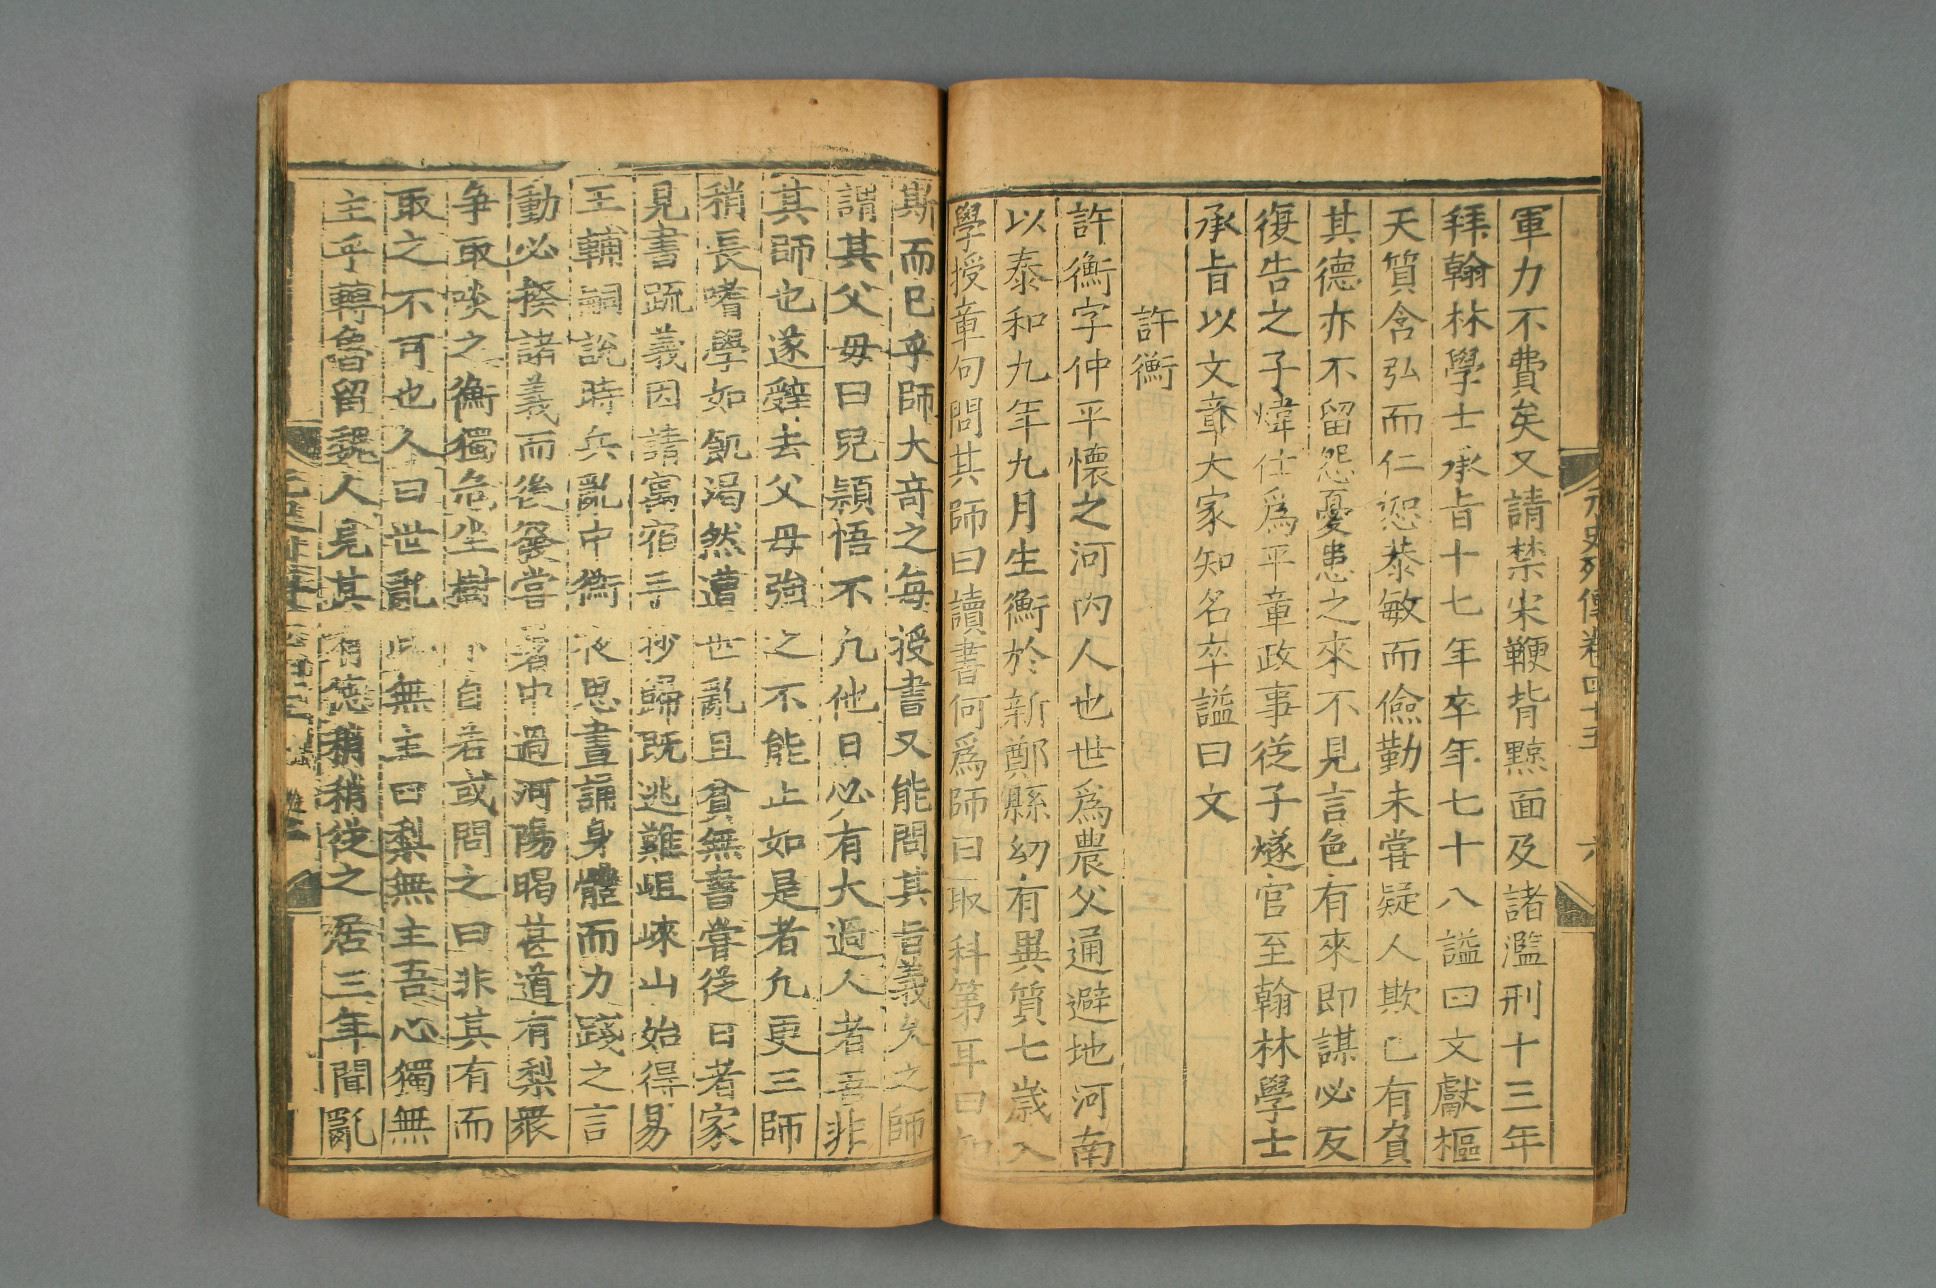 元史列傳卷四十五 六
軍力不費矣又請禁宋鞭背黥面及諸濫刑十三年
拜翰林學士承旨十七年卒年七十八謚曰文獻樞
天質含弘而仁恕恭敏而儉勤未嘗疑人欺己有負
其德亦不留怨憂患之來不見言色有來即謀必反
復告之子煒仕爲平章政事從子燧官至翰林學士
承旨以文章大家知名卒謚曰文
許衡
許衡字仲平懷之河内人也世爲農父通避地河南
以泰和九年九月生衡於新鄭縣幼有異質七歲入
學授章句問其師曰讀書何爲師曰取科第耳曰如
斯而巳乎師大竒之每授書又能問其旨義久之師
謂其父母曰兒頴悟不凡他日必有大過人者吾非
其師也遂辤去父母強之不能止如是者凡更三師
稍長嗜學如飢渴然遭世亂且貧無書嘗從日者家
見書疏義因請寓宿手抄歸既逃難岨崍山始得易
王輔嗣說時兵亂中衡夜思晝誦身體而力踐之言
動必揆諸義而後發嘗暑中過河陽暍甚道有梨衆
争取啖之衡獨危坐樹下自若或問之曰非其有而
取之不可也人曰世亂此無主曰梨無主吾心獨無
主乎轉魯留魏人見其有德稍稍從之居三年聞亂